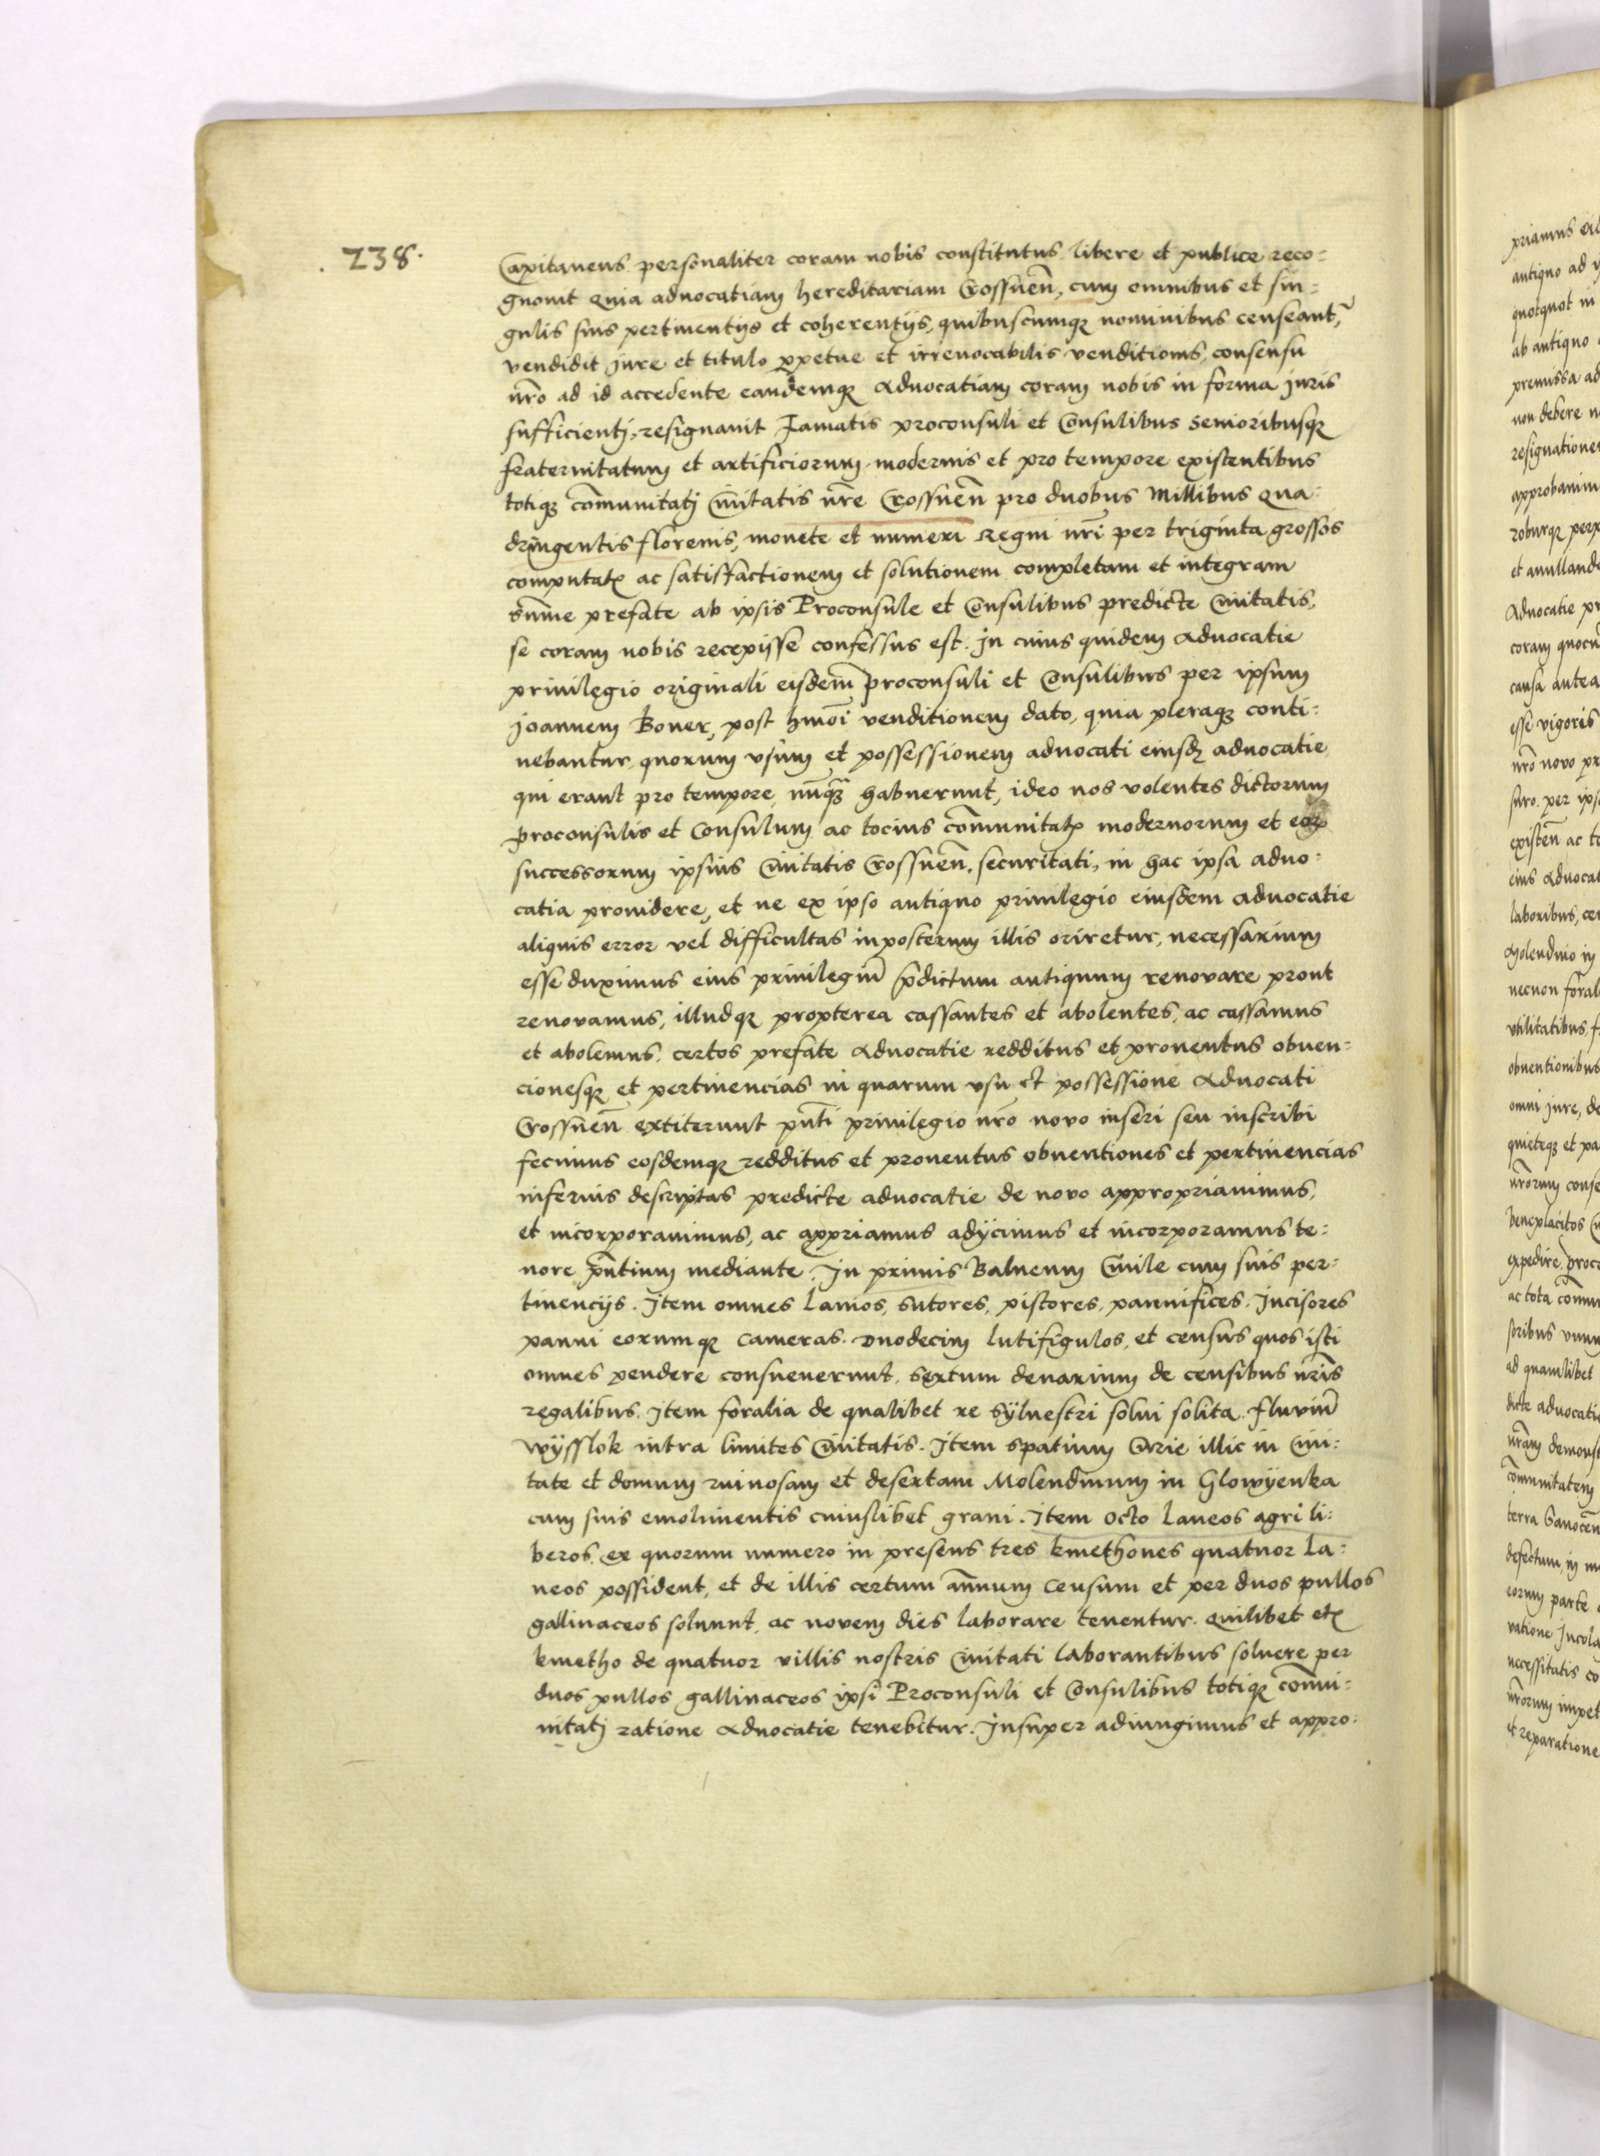 . 238.
Capitaneus personaliter coram nobis constitutus, libere et publice reco=
gnouit Quia aduocatiam hereditariam Crossnen̄, cum omnibus et sin=
gulis suis pertinentijs et coherentijs, quibuscumq nominibus censeant᷑,
vendidit jure et titulo ꝑpetue et irreuocabilis venditionis, consensu
nr̄o ad id accedente eandemq Aduocatiam coram nobis in forma juris
sufficientj, resignauit famatis proconsuli et Consulibus senioribusq
fraternitatum et artificiorum modernis et pro tempore existentibus
totiq com̄unitatj Ciuitatis nr̄e Crossnen̄ pro duobus Millibus Qua=
dringentis florenis, monete et numeri Regni nr̄i per triginta grossos
computat ac satisfactionem et solutionem completam et integram
sum̄e prefate ab ipsis Proconsule et Consulibus predicte Ciuitatis,
se coram nobis recepisse confessus est. In cuius quidem Aduocatie
priuilegio originali eisdem̄ proconsuli et Consulibus per ipsum
Joannem Boner, post hmōi venditionem dato, quia pleraq conti=
nebantur, quorum vsum et possessionem aduocati eiusd aduocatie
qui erant pro tempore, nūq habuerunt, ideo nos volentes dictorum
proconsulis et Consulum ac tocius com̄unitat modernorum et eor
successorum ipsius Ciuitatis Crossnen̄. securitati, in hac ipsa aduo=
catia prouidere, et ne ex ipso antiquo priuilegio eiusdem aduocatie
aliquis error vel difficultas inposterum illis oriretur, necessarium
esse duximus eius priuilegiū p̄dictum antiquum renovare prout
renovamus, illudq propterea cassantes et abolentes, ac cassamus
et abolemus, certos prefate Aduocatie redditus et prouentus obuen=
cionesq et pertinencias in quarum vsu et possessione Aduocati
Crossnen̄ extiterunt pn̄ti priuilegio nr̄o novo inseri seu inscribi
fecimus eosdemq redditus et prouentus obuentiones et pertinencias
inferius descriptas predicte aduocatie de novo appropriauimus,
et incorporauimus, ac appriamus adijcimus et incorporamus te=
nore pn̄tium mediante. In primis Balneum Ciuile cum suis per=
tinencijs. Item omnes lanios, sutores, pistores, pannifices, Incisores
panni eorumq cameras. Duodecim lutifigulos, et census quos isti
omnes pendere consueuerunt, sextum denarium de censibus nr̄is
regalibus. Item foralia de qualibet re Syluestri solui solita. fluuiū
Wysslok intra limites Ciuitatis. Item spatium Curie illic in Ciui=
tate et domum ruinosam et desertam Molendinum in Glowyenka
cum suis emolimentis cuiuslibet grani. Item octo laneos agri li=
beros, ex quorum numero in presens tres kmethones quatuor la=
neos possident, et de illis certum an̄uum censum et per duos pullos
gallinaceos soluunt, ac novem dies laborare tenentur. Quilibet et
kmetho de quatuor villis nostris Ciuitati laborantibus soluere per
duos pullos gallinaceos ipsi Proconsuli et Consulibus totiq com̄u=
nitatj ratione Aduocatie tenebitur. Insuper adiungimus et appro=